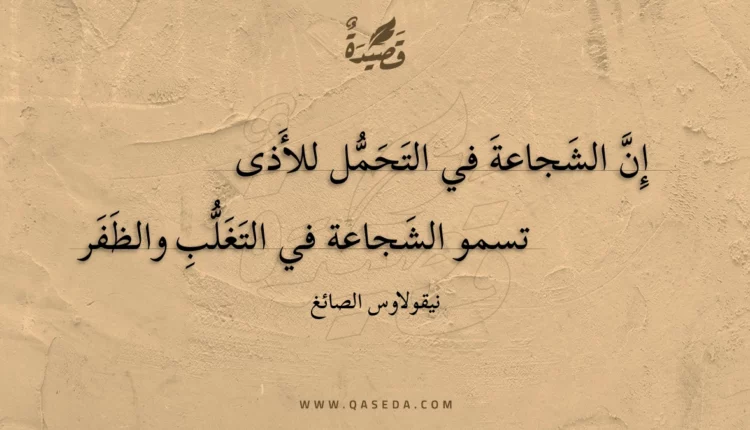 قَصِيدَةٌ
إِنَّ الشَجاعةَ في التَحَمُّل للأَذى
تسمو الشَجاعة في التَغَلُّبِ والظَفَر
نيقولاوس الصائغ
WWW.QASEDA.COM